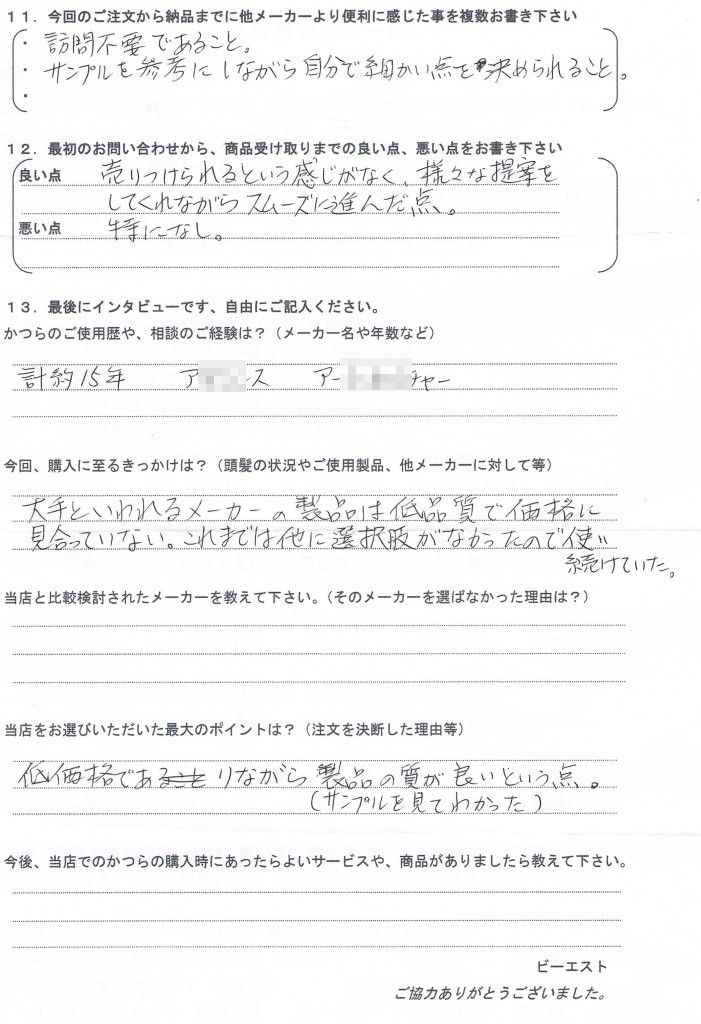 １１．今回のご注文から納品までに他メーカーより便利に感じた事を複数お書き下さい
・訪問不要であること。
・サンプルを参考にしながら自分で細かい点を決められること。
・
１２．最初のお問い合わせから、商品受け取りまでの良い点、悪い点をお書き下さい
良い点 売りつけられるという感じがなく、様々な提案を
してくれながらスムーズに進んだ点。
悪い点 特になし。
１３．最後にインタビューです、自由にご記入ください。
かつらのご使用歴や、相談のご経験は？（メーカー名や年数など）
計約15年 ア ス アー チャー
今回、購入に至るきっかけは？（頭髪の状況やご使用製品、他メーカーに対して等）
大手といわれるメーカーの製品は低品質で価格に
見合っていない。これまでは他に選択肢がなかったので使い
続けていた。
当店と比較検討されたメーカーを教えて下さい。（そのメーカーを選ばなかった理由は？）
当店をお選びいただいた最大のポイントは？（注文を決断した理由等）
低価格でありながら製品の質が良いという点。
（サンプルを見てわかった）
今後、当店でのかつらの購入時にあったらよいサービスや、商品がありましたら教えて下さい。
ビーエスト
ご協力ありがとうございました。